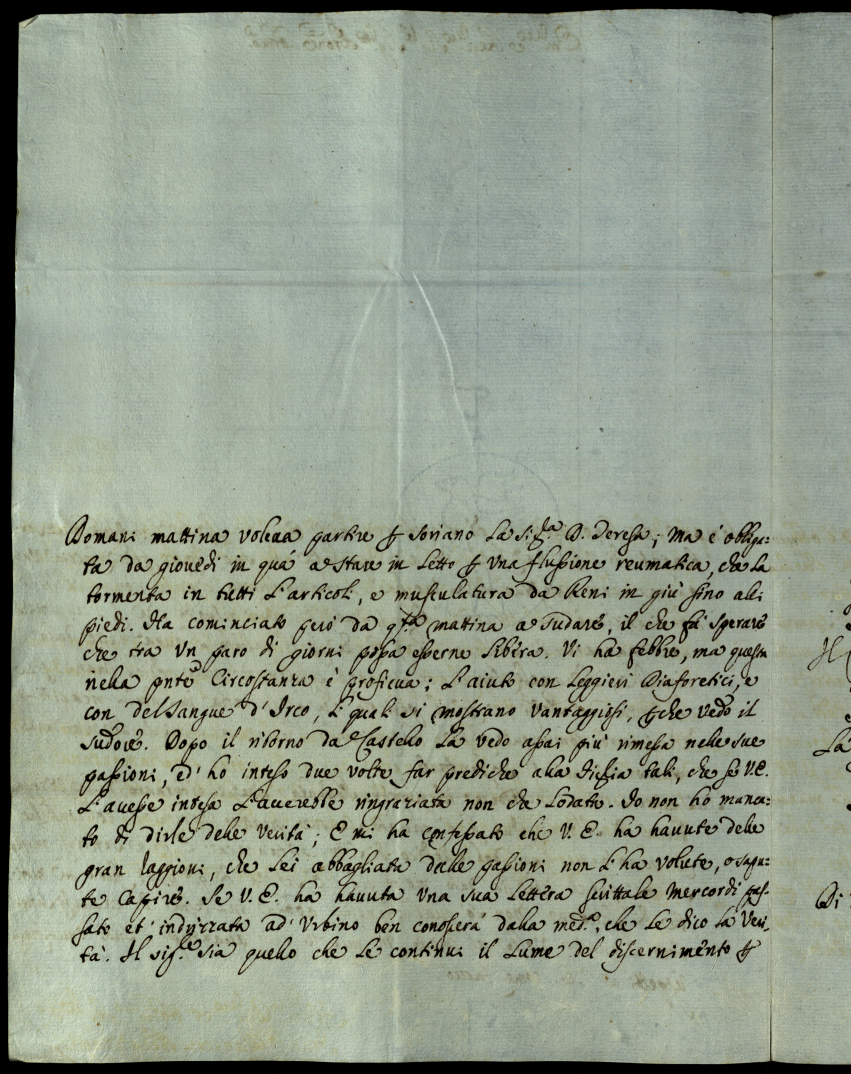 Domani mattina voleua partire p Soriano La Sig.ra D. Teresa; Ma è obliga:
ta da giovedi in quá a stare in Letto p Una flussione reumatica, che La
tormenta in tutti L'articoli, e musculatura da Reni in giù sino alli
piedi. Ha cominciato però da q.ta mattina a Sudare, il che fá sperare
che tra Un paro di giorni possa esserne Libera. Vi ha febbre, ma questa
nella pnte Circostanza è proficua; L'aiuto con Leggieri Diaforetici, e
con del Sangue d'Irco, L'quali si mostrano Vantaggiosi, pche vedo il
Sudore. Dopo il ritorno da Castello La vedo assai più rimessa nelle sue
passioni, ed' ho inteso due volte far prediche alla tali, che se V.E.
L'auesse intesa L'auerebbe ringraziata non che Lodata. Io non ho manca:
to di dirle delle Verità; E mi ha confessato che V. E. ha hauute delle
gran raggioni, che Lei abbagliata dalle passioni non L'ha volute, o sapu:
te Capire. Se V. E. ha hauuta Una sua Lettera scrittale Mercordi pas-
sato et' indrizzata ad' Urbino ben conoscerá dalla med.a, che Le dico La Veri,
tà. Il Sig.re sia quello che Le continui il Lume del discernimento p